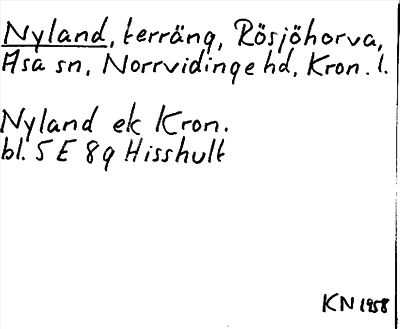 Nyland, terräng, Rösjöhorva,
Asa sn, Norrvidinge hd, Kron. l.
Nyland ek Kron.
bl. 5 E 8 g Hisshult
KN 1958